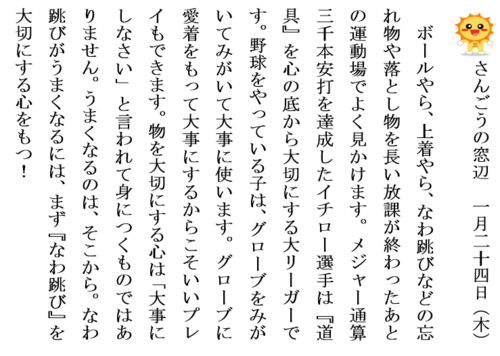 さんごうの窓辺　一月二十四日（木）
　ボールやら、上着やら、なわ跳びなどの忘
れ物や落とし物を長い放課が終わったあと
の運動場でよく見かけます。メジャー通算
三千本安打を達成したイチロー選手は『道
具』を心の底から大切にする大リーガーで
す。野球をやっている子は、グローブをみが
いてみがいて大事に使います。グローブに
愛着をもって大事にするからこそいいプレ
イもできます。物を大切にする心は「大事に
しなさい」と言われて身につくものではあ
りません。うまくなるのは、そこから。なわ
跳びがうまくなるには、まず『なわ跳び』を
大切にする心をもつ！